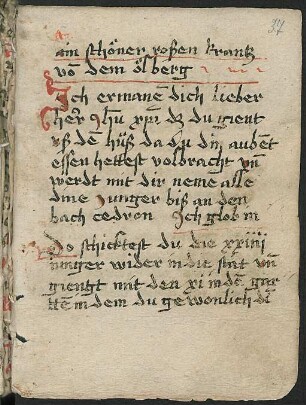 37
ain schöner roßen krantz
võ dem ölberg
Ich ermanen dich lieber
her Jhũ xpi dz du gient
vß dẽ hüß da du din aubẽt
essen hettest volbracht vñ
werdt mit dir neme alle
dine Junger biß an den
bach cedron Ich glob in
Do schicktest du die xxiiij
iunger wider in die stat vñ
giengt mit den xi in dẽ gar
tẽ in dem du gewonlich di